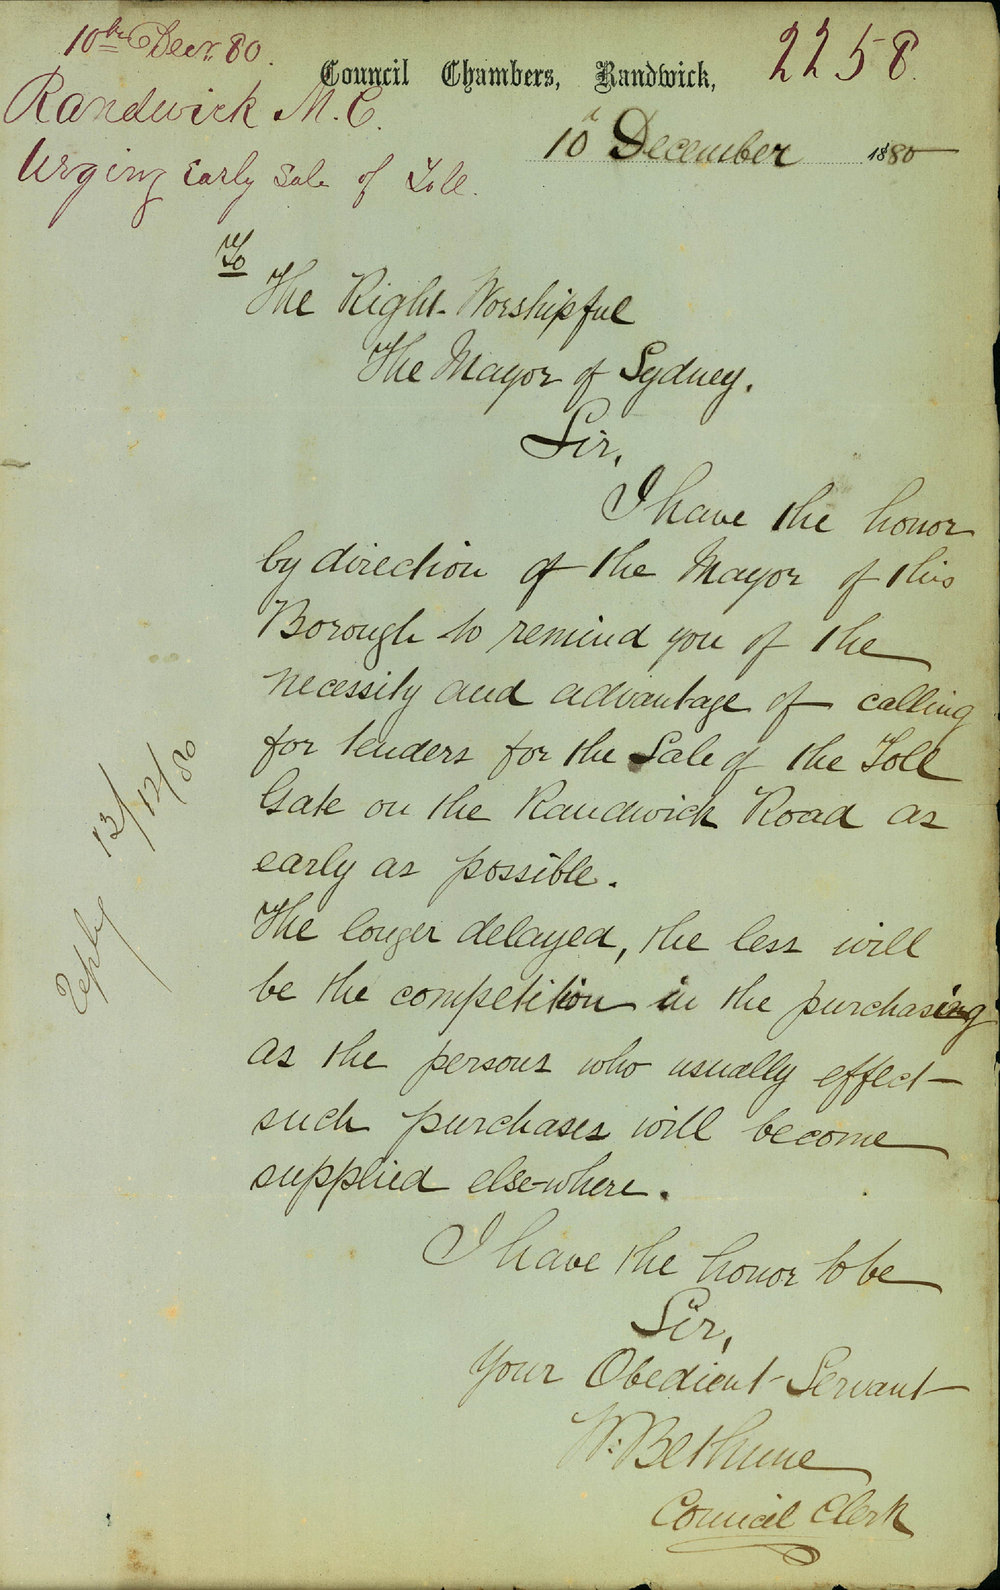 10th Decr. 80.
Randwick M. C.
Urging Early Sale of Toll.
2258.
Council Chambers, Randwick,
10th December 1880
To
The Right Worshipful
The Mayor of Sydney.
Sir,
I have the honor
by direction of the Mayor of this
Borough to remind you of the
necessity and advantage of calling
for tenders for the Sale of the Toll
Gate on the Randwick Road as
early as possible.
The longer delayed, the less will
be the competition in the purchasing
as the persons who usually effect
such purchases will become
supplied elsewhere.
I have the honor to be
Sir,
Your Obedient Servant
W. Bethune
Council Clerk
Reply 13/12/80